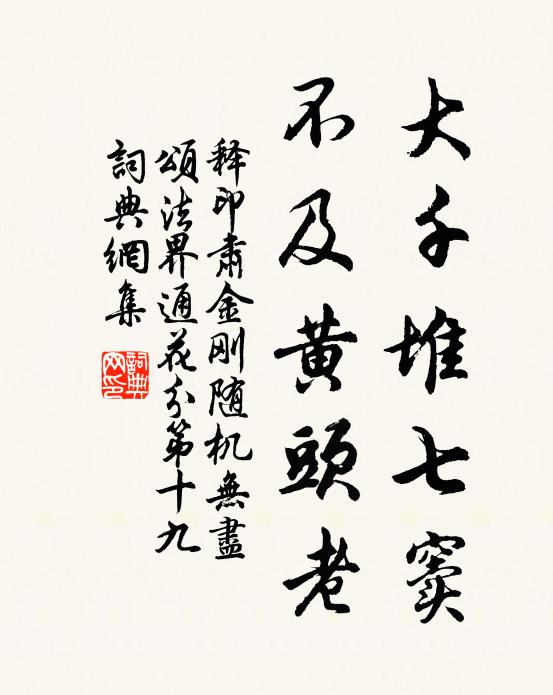 大千堆七窦
不及黄頭老
释印肃金刚随机無盡
頌法界通花分第十九
詞典網集
詞典网印